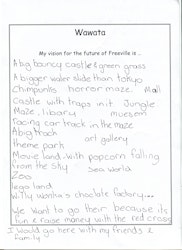 Wawata
My vision for the future of Freeville is ..
A big bouncy castle & green grass
A bigger water slide than tokyo
Chimpunks horror maze Mall
Castle with traps in it Jungle
Maze, library museum
Racing car track in the maze
A big track
art gallery
theme park
Movie land - with popcorn falling
from the sky Sea world
Zoo
lego land
Willy Wonka's choclate factory...
We want to go their because its
fun & raise money with the red cross
I would go here with my friends &
family